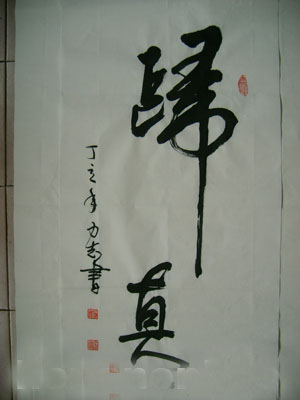 歸真
丁亥年力志書